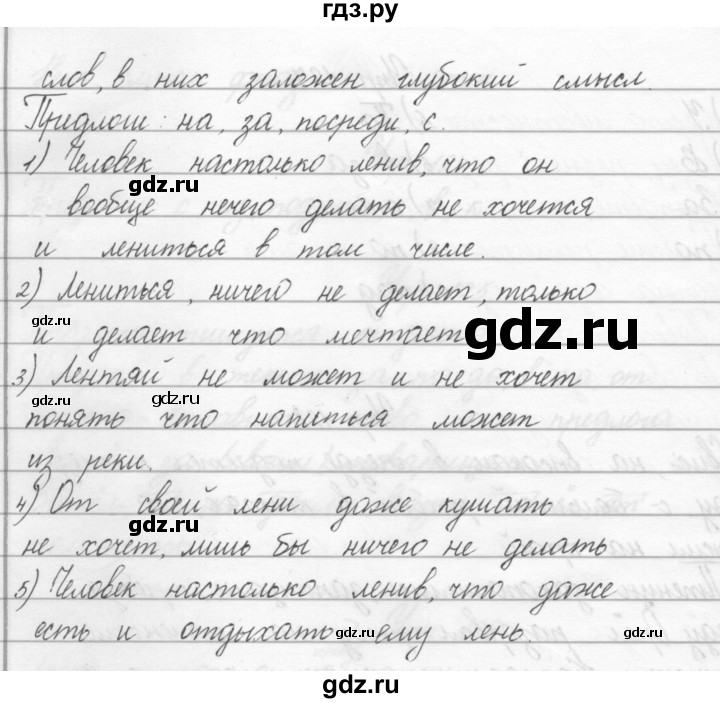 гдз.ру
слов, в них заложен глубокий смысл.
Предлош: на, за, посреди, с.
1) Человек настолько ленив, что он
gdz.ru
вообще нечего делать не хочется
и лениться в том числе.
2) Лениться, ничего не делает, только
gdz.ru
gdz.ru
и делает что мечтает
3) Лентяй не может и не хочет
gdz.ru
gdz.ru
понять что напиться может
из реки.
4) От своей лени даже кушать
gdz.ru
не хочет, лишь бы ничего не делать
5) Человек настолько ленив, что даже
есть и отдыхать ему лень
gdz.ru
gdz.ru
gdz.ru